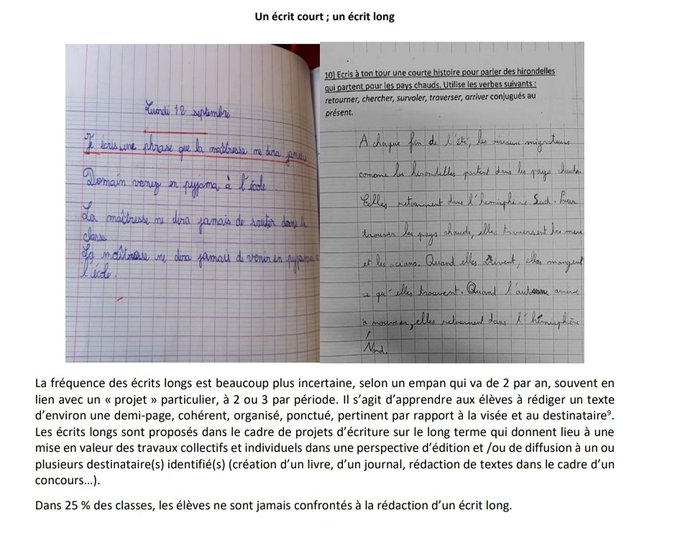 Un écrit court ; un écrit long
Lundi 12 septembre
Je écris une phrase que la maîtresse ne dira jamais
Demain venez en pyjama à l'école.
La maîtresse ne dira jamais de sauter dans la
classe
La maîtresse ne dira jamais de venir en pyjama à
l'école.
10) Ecris à ton tour une courte histoire pour parler des hirondelles
qui partent pour les pays chauds. Utilise les verbes suivants :
retourner, chercher, survoler, traverser, arriver conjugués au
présent.
A chaque fin de l'été, les oiseaux migrateurs
comme les hirondelles partent dans les pays chauds.
Elles retournent dans l'hémisphère Sud. Pour
trouver les pays chauds, elles traversent les mers
et les océans. Quand elles arrivent, elles mangent
ce qu'elles trouvent. Quand l'automne arrive
à nouveau, elles retournent dans l'hémisphère
Nord.
La fréquence des écrits longs est beaucoup plus incertaine, selon un empan qui va de 2 par an, souvent en
lien avec un « projet » particulier, à 2 ou 3 par période. Il s'agit d'apprendre aux élèves à rédiger un texte
d'environ une demi-page, cohérent, organisé, ponctué, pertinent par rapport à la visée et au destinataire⁹.
Les écrits longs sont proposés dans le cadre de projets d'écriture sur le long terme qui donnent lieu à une
mise en valeur des travaux collectifs et individuels dans une perspective d'édition et /ou de diffusion à un ou
plusieurs destinataire(s) identifié(s) (création d'un livre, d'un journal, rédaction de textes dans le cadre d'un
concours…).
Dans 25 % des classes, les élèves ne sont jamais confrontés à la rédaction d'un écrit long.